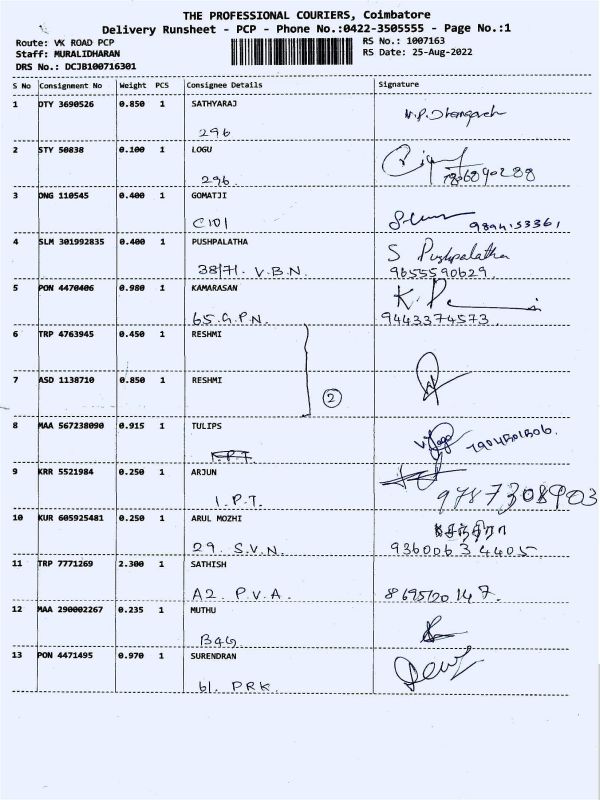 THE PROFESSIONAL COURIERS, Coimbatore
Delivery Runsheet - PCP - Phone No.:0422-3505555 - Page No.:1
Route: VK ROAD PCP
Staff: MURALIDHARAN
DRS No.: DCJB100716301
RS No.: 1007163
RS Date: 25-Aug-2022
S No Consignment No Weight PCS Consignee Details Signature
1 DTY 3690526 0.850 1 SATHYARAJ
296
2 STY 50838 0.100 1 LOGU
296
3 DNG 110545 0.400 1 GOMATJI
C101 9894153361
4 SLM 301992835 0.400 1 PUSHPALATHA S Pushpalatha
38/71. V.B.N. 9655590629
5 PON 4470406 0.980 1 KAMARASAN
65.G.P.N. 9443374573
6 TRP 4763945 0.450 1 RESHMI
7 ASD 1138710 0.850 1 RESHMI
2
8 MAA 567238090 0.915 1 TULIPS
9 KRR 5521984 0.250 1 ARJUN
I.P.T. 9787308903
10 KUR 605925481 0.250 1 ARUL MOZHI
29. S.V.N.
11 TRP 7771269 2.300 1 SATHISH
A2. P.V.A.
12 MAA 290002267 0.235 1 MUTHU
B4G
13 PON 4471495 0.970 1 SURENDRAN
61. PRK.